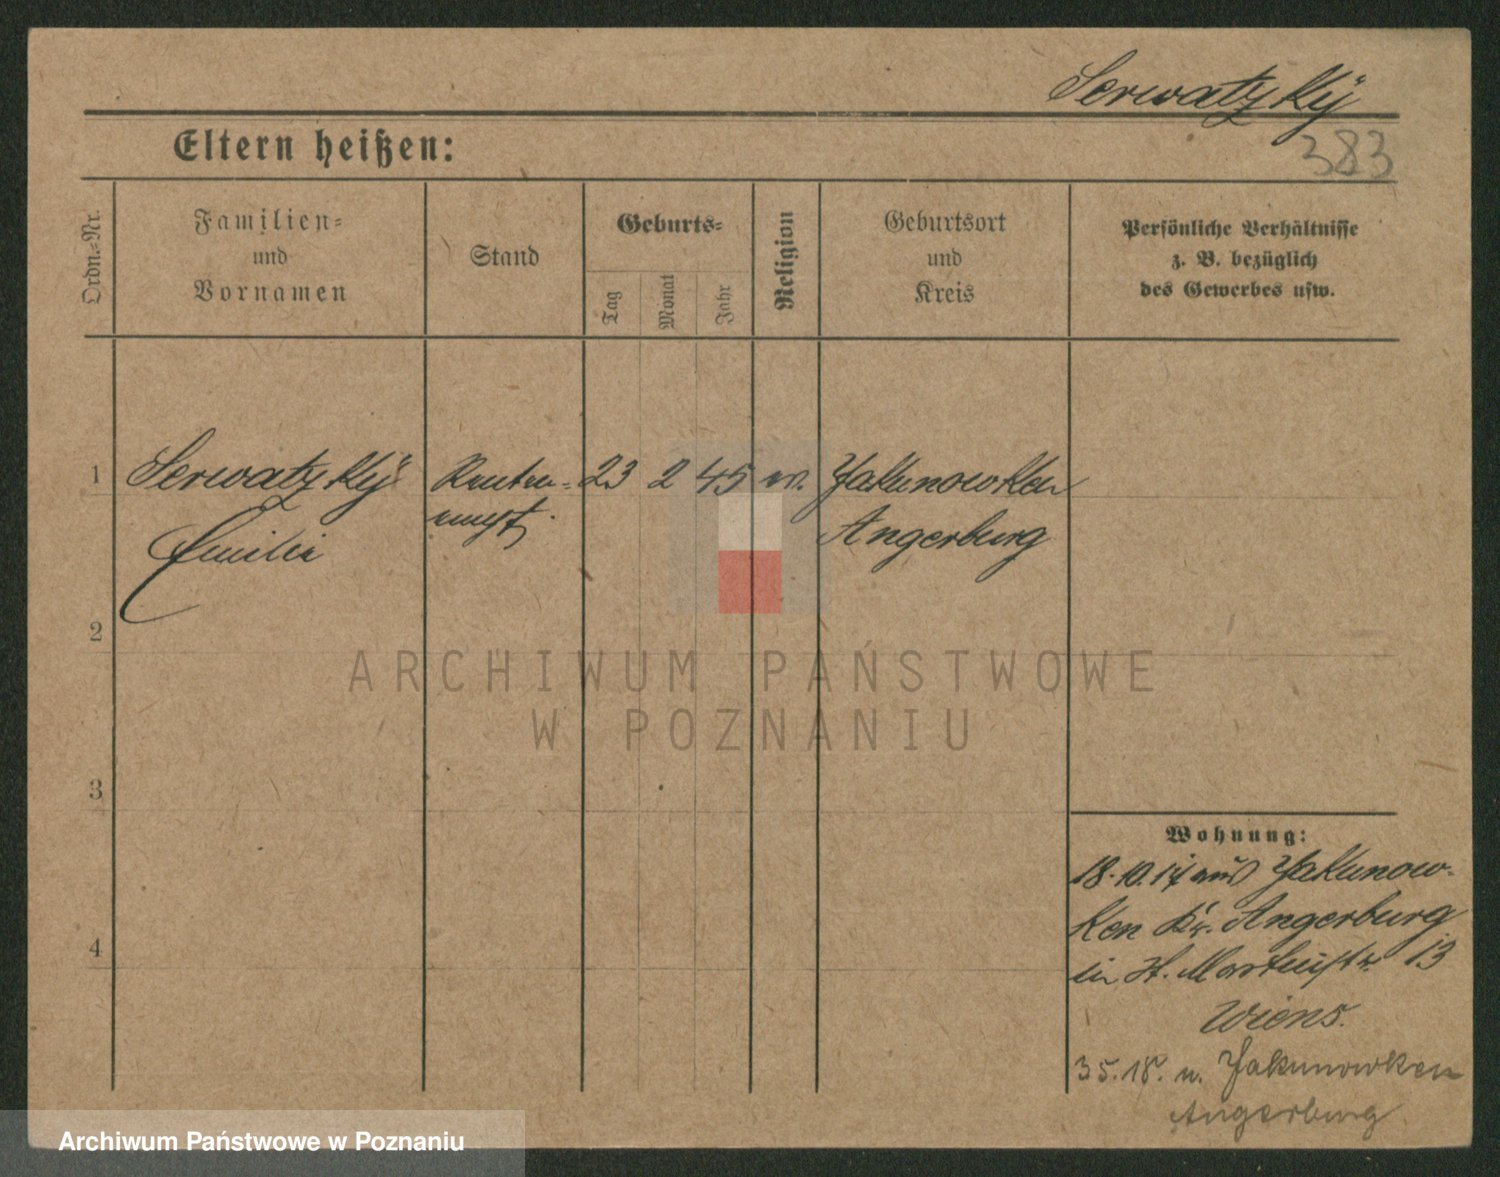 Serwatzky
383
Eltern heißen:
Ordn.-Nr.
Familien-
und
Vornamen
Stand
Geburts-
Tag
Monat
Jahr
Religion
Geburtsort
und
Kreis
Persönliche Verhältnisse
z. B. bezüglich
des Gewerbes usw.
1 Serwatzky Renten- 23 2 45 Jakunowken
Emilie empf. Angerburg
2
3
4
Wohnung:
18.10.17 aus Jakunow-
ken Kr. Angerburg
in St. Martinstr. 13
Wiens.
3 5. 18. n. Jakunowken
Angerburg
ARCHIWUM PAŃSTWOWE
W POZNANIU
Archiwum Państwowe w Poznaniu